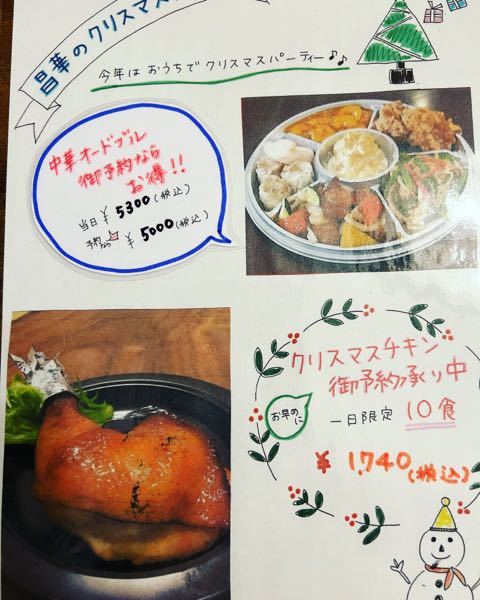 昌華のクリスマス
今年はおうちでクリスマスパーティー♪♪
中華オードブル
御予約なら
お得!!
当日¥5300(税込)
予約なら¥5000(税込)
クリスマスチキン
御予約承り中
お早めに
一日限定 10食
¥1,740(税込)